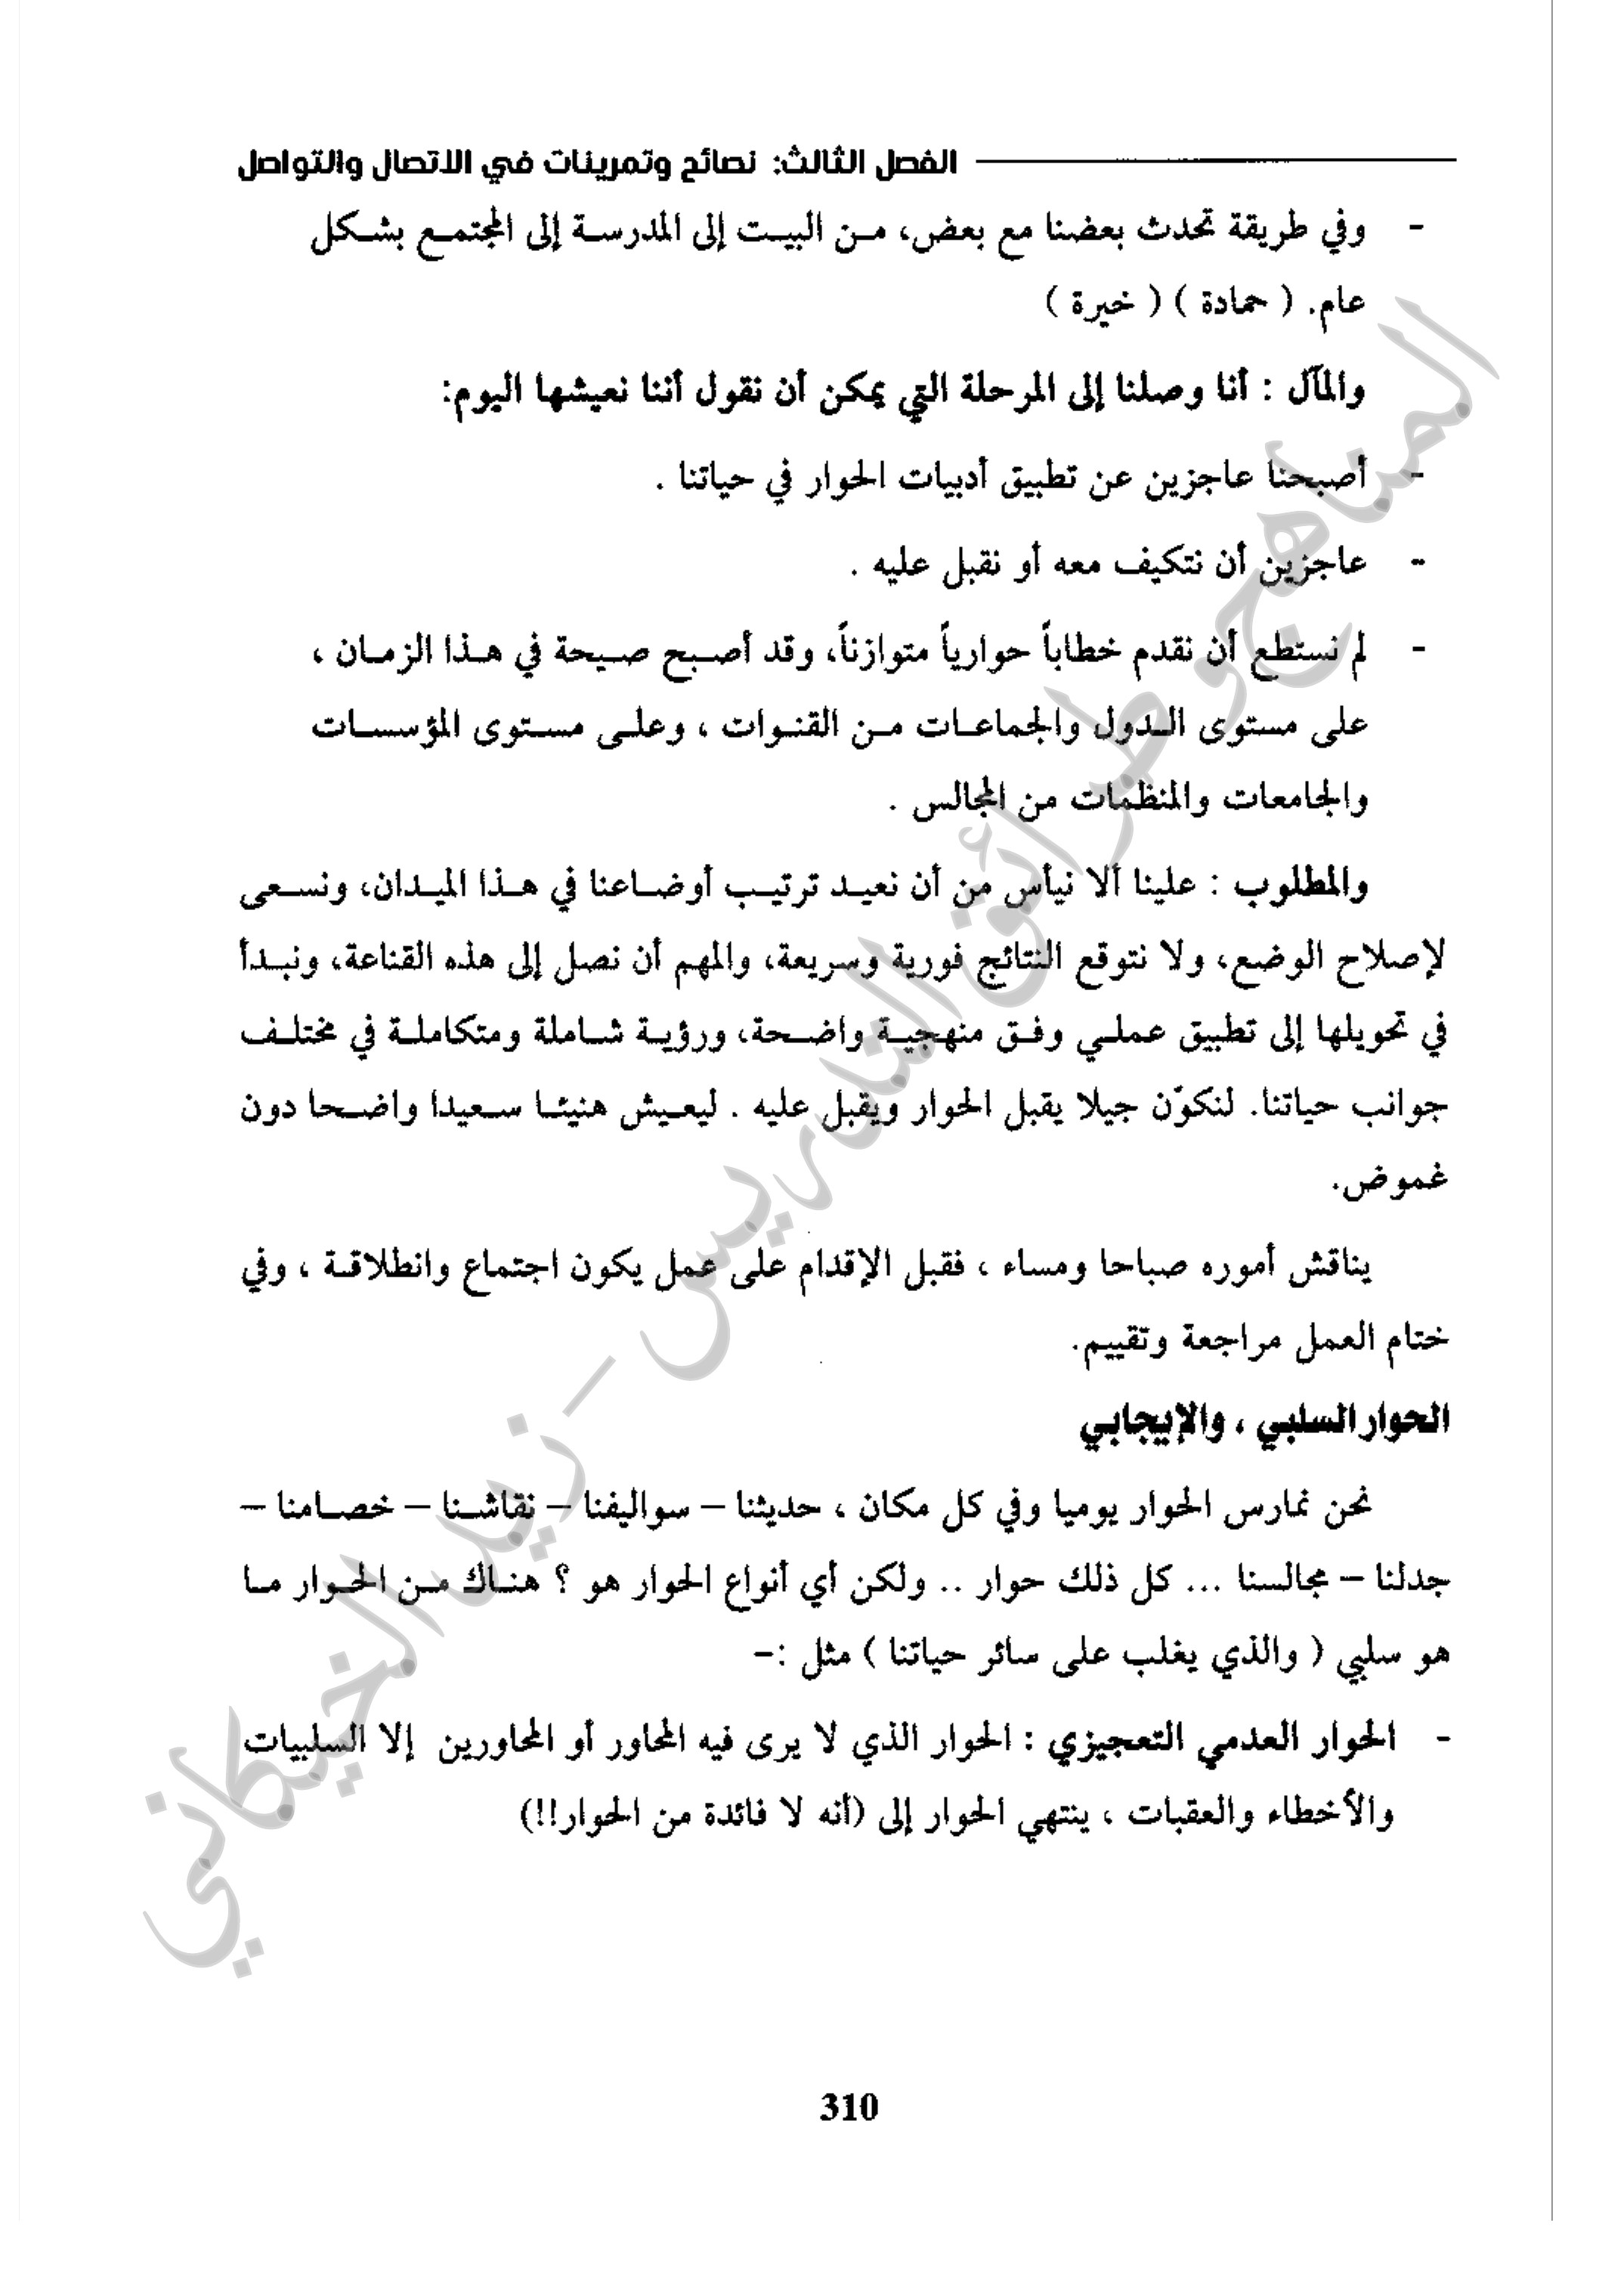 الفصل الثالث: نصائح وتمرينات في الاتصال والتواصل
- وفي طريقة تحدث بعضنا مع بعض، من البيت إلى المدرسة إلى المجتمع بشكل
عام. ( حمادة ) ( خيرة )
والمآل : أنا وصلنا إلى المرحلة التي يمكن أن نقول أننا نعيشها اليوم:
- أصبحنا عاجزين عن تطبيق أدبيات الحوار في حياتنا .
- عاجزين أن نتكيف معه أو نقبل عليه .
- لم نستطع أن نقدم خطاباً حوارياً متوازناً، وقد أصبح صيحة في هذا الزمان ،
على مستوى الدول والجماعات من القنوات ، وعلى مستوى المؤسسات
والجامعات والمنظمات من المجالس .
والمطلوب : علينا ألا نيأس من أن نعيد ترتيب أوضاعنا في هذا الميدان، ونسعى
لإصلاح الوضع، ولا نتوقع النتائج فورية وسريعة، والمهم أن نصل إلى هذه القناعة، ونبدأ
في تحويلها إلى تطبيق عملي وفق منهجية واضحة، ورؤية شاملة ومتكاملة في مختلف
جوانب حياتنا. لنكوّن جيلا يقبل الحوار ويقبل عليه . ليعيش هنيئا سعيدا واضحا دون
غموض.
يناقش أموره صباحا ومساء ، فقبل الإقدام على عمل يكون اجتماع وانطلاقة ، وفي
ختام العمل مراجعة وتقييم.
الحوار السلبي ، والإيجابي
نحن نمارس الحوار يوميا وفي كل مكان ، حديثنا – سواليفنا – نقاشنا – خصامنا –
جدلنا – مجالسنا ... كل ذلك حوار .. ولكن أي أنواع الحوار هو ؟ هناك من الحوار ما
هو سلبي ( والذي يغلب على سائر حياتنا ) مثل :-
- الحوار العدمي التعجيزي : الحوار الذي لا يرى فيه المحاور أو المحاورين إلا السلبيات
والأخطاء والعقبات ، ينتهي الحوار إلى (أنه لا فائدة من الحوار!!)
المناهج وطرائق التدريس - زيد الخيكاني
310